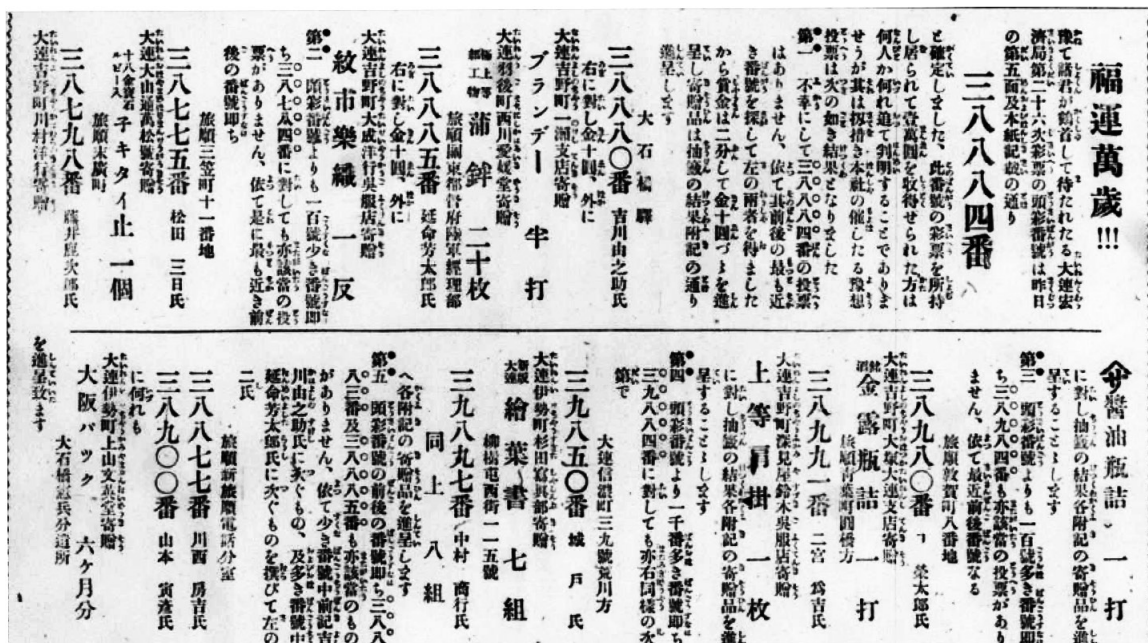 福運萬歲!!!
豫て諸君が鶴首して待たれたる大連宏
濟局第二十六次彩票の頭彩番號は昨日
の第五面及本紙記載の通り
三八八八四番
と確定しました、此番號の彩票を所持
し居られて壹萬圓を收得せられた方は
何人か何れ追て判明することでありま
せうが其は扨措き本社の催したる豫想
投票は次の如き結果となりました
第一 不幸にして三八八八四番の投票
はありません、依て其前後の最も近
き番號を探して左の兩者を得ました
から賞金は二分して金十圓づゝを進
呈し寄贈品は抽籤の結果附記の通り
進呈します
大石橋驛
三八八八〇番 吉川由之助氏
右に對し金十圓、外に
大連吉野町一瀬支店寄贈
ブランデー 半打
大連羽後町西川愛媛堂寄贈
極上等細工物 蒲鉾 二十枚
旅順關東都督府陸軍經理部
三八八八五番 延命芳太郎氏
右に對し金十圓、外に
大連吉野町大成洋行吳服店寄贈
紋市樂織 一反
第二 頭彩番號よりも一百號少き番號即
ち三八七八四番に對しても亦該當の投
票がありません、依て是に最も近き前
後の番號即ち
旅順三笠町十一番地
三八七七五番 松田 三日氏
大連大山通萬松號寄贈
十八金寶石ルビー入 子キタイ止一個
旅順末廣町
三八七九八番 藤井鹿次郎氏
大連吉野町川村洋行寄贈
醬油瓶詰 一打
に對し抽籤の結果各附記の寄贈品を進
呈することゝします
第三 頭彩番號よりも一百號多き番號即
ち三八九八四番も亦該當の投票があり
ません、依て最近前後番號なる
旅順敦賀町八番地
三八九八〇番 榮太郎氏
大連吉野町大塚大連支店寄贈
銘酒 金露瓶詰 一打
旅順靑葉町四橋方
三八九九一番 二宮 爲吉氏
大連吉野町深見屋鈴木吳服店寄贈
上等肩掛 一枚
に對し抽籤の結果各附記の寄贈品を進
呈することゝします
第四 頭彩番號より一千番多き番號即ち
三九八八四番に對しても亦右同樣の次
第で
大連信濃町三九號荒川方
三九八五〇番 城 戸 氏
大連伊勢町杉田寫眞部寄贈
新版大連 繪葉書 七組
柳樹屯西街一一五號
三九八九七番 中村 商行氏
同上 八組
へ各附記の寄贈品を進呈します
第五 頭彩番號の前後の番號即ち三八八
八三番及三八八八五番も亦該當のもの
がありません、依て少き番號中前記吉
川由之助氏に次ぐもの、及多き番號中
延命芳太郎氏に次ぐものを撰びて左の
二氏
旅順新旅順電話分室
三八八七七番 川西 房吉氏
三八九〇〇番 山本 寅彥氏
に何れも
大連伊勢町上山文英堂寄贈
大阪パック 六ヶ月分
大石橋憲兵分遣所
を進呈致ます